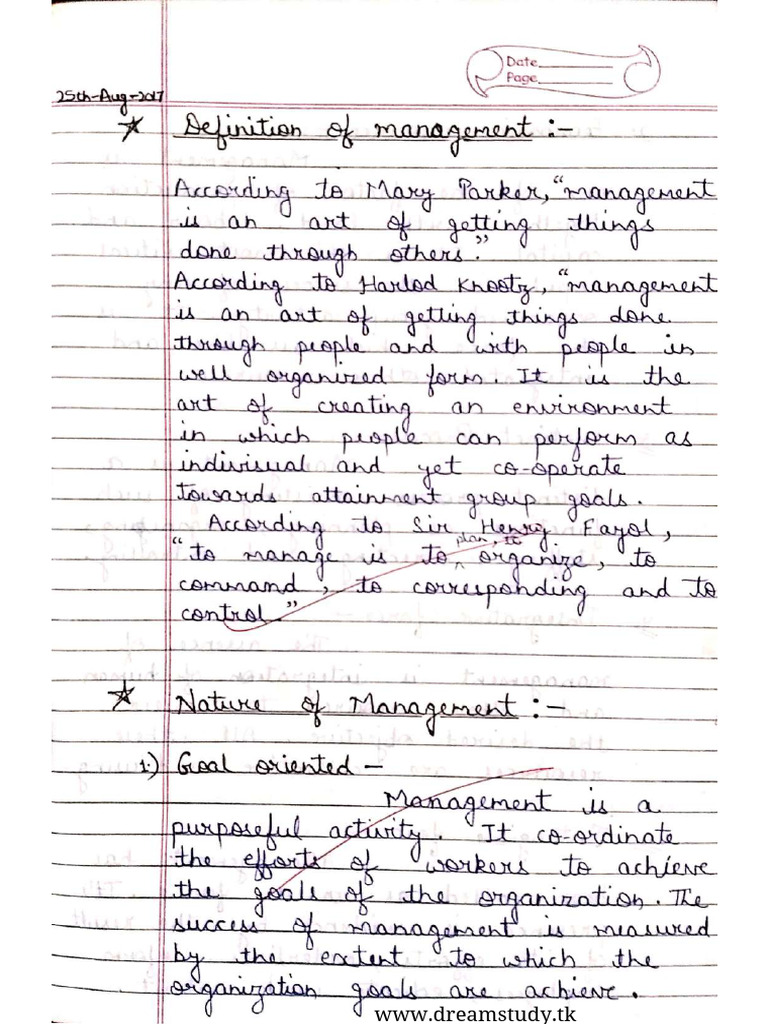 Date
Page
25th-Aug-2017
☆ Definition of management :-
According to Mary Parker, "management
is an art of getting things
done through others."
According to Harlod Knootz, "management
is an art of getting things done
through people and with people in
well organized form. It is the
art of creating an environment
in which people can perform as
indivisual and yet co-operate
towards attainment group goals.
According to Sir Henry Fayol,
plan, to
"to manage is to organize, to
command, to corresponding and to
control."
☆ Nature of Management :-
1.) Goal oriented -
Management is a
purposeful activity. It co-ordinate
the efforts of workers to achieve
the goals of the organization. The
success of management is measured
by the extent to which the
organization goals are achieve.
www.dreamstudy.tk